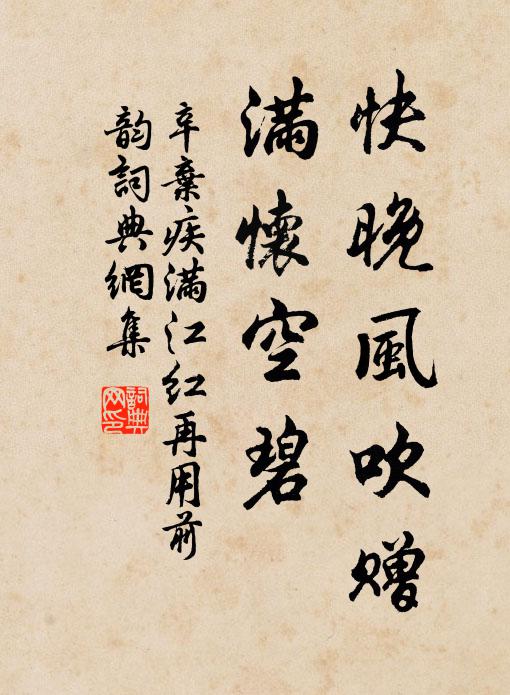 快晚風吹贈
滿懷空碧
辛棄疾滿江紅再用前
韵詞典網集
詞典網印